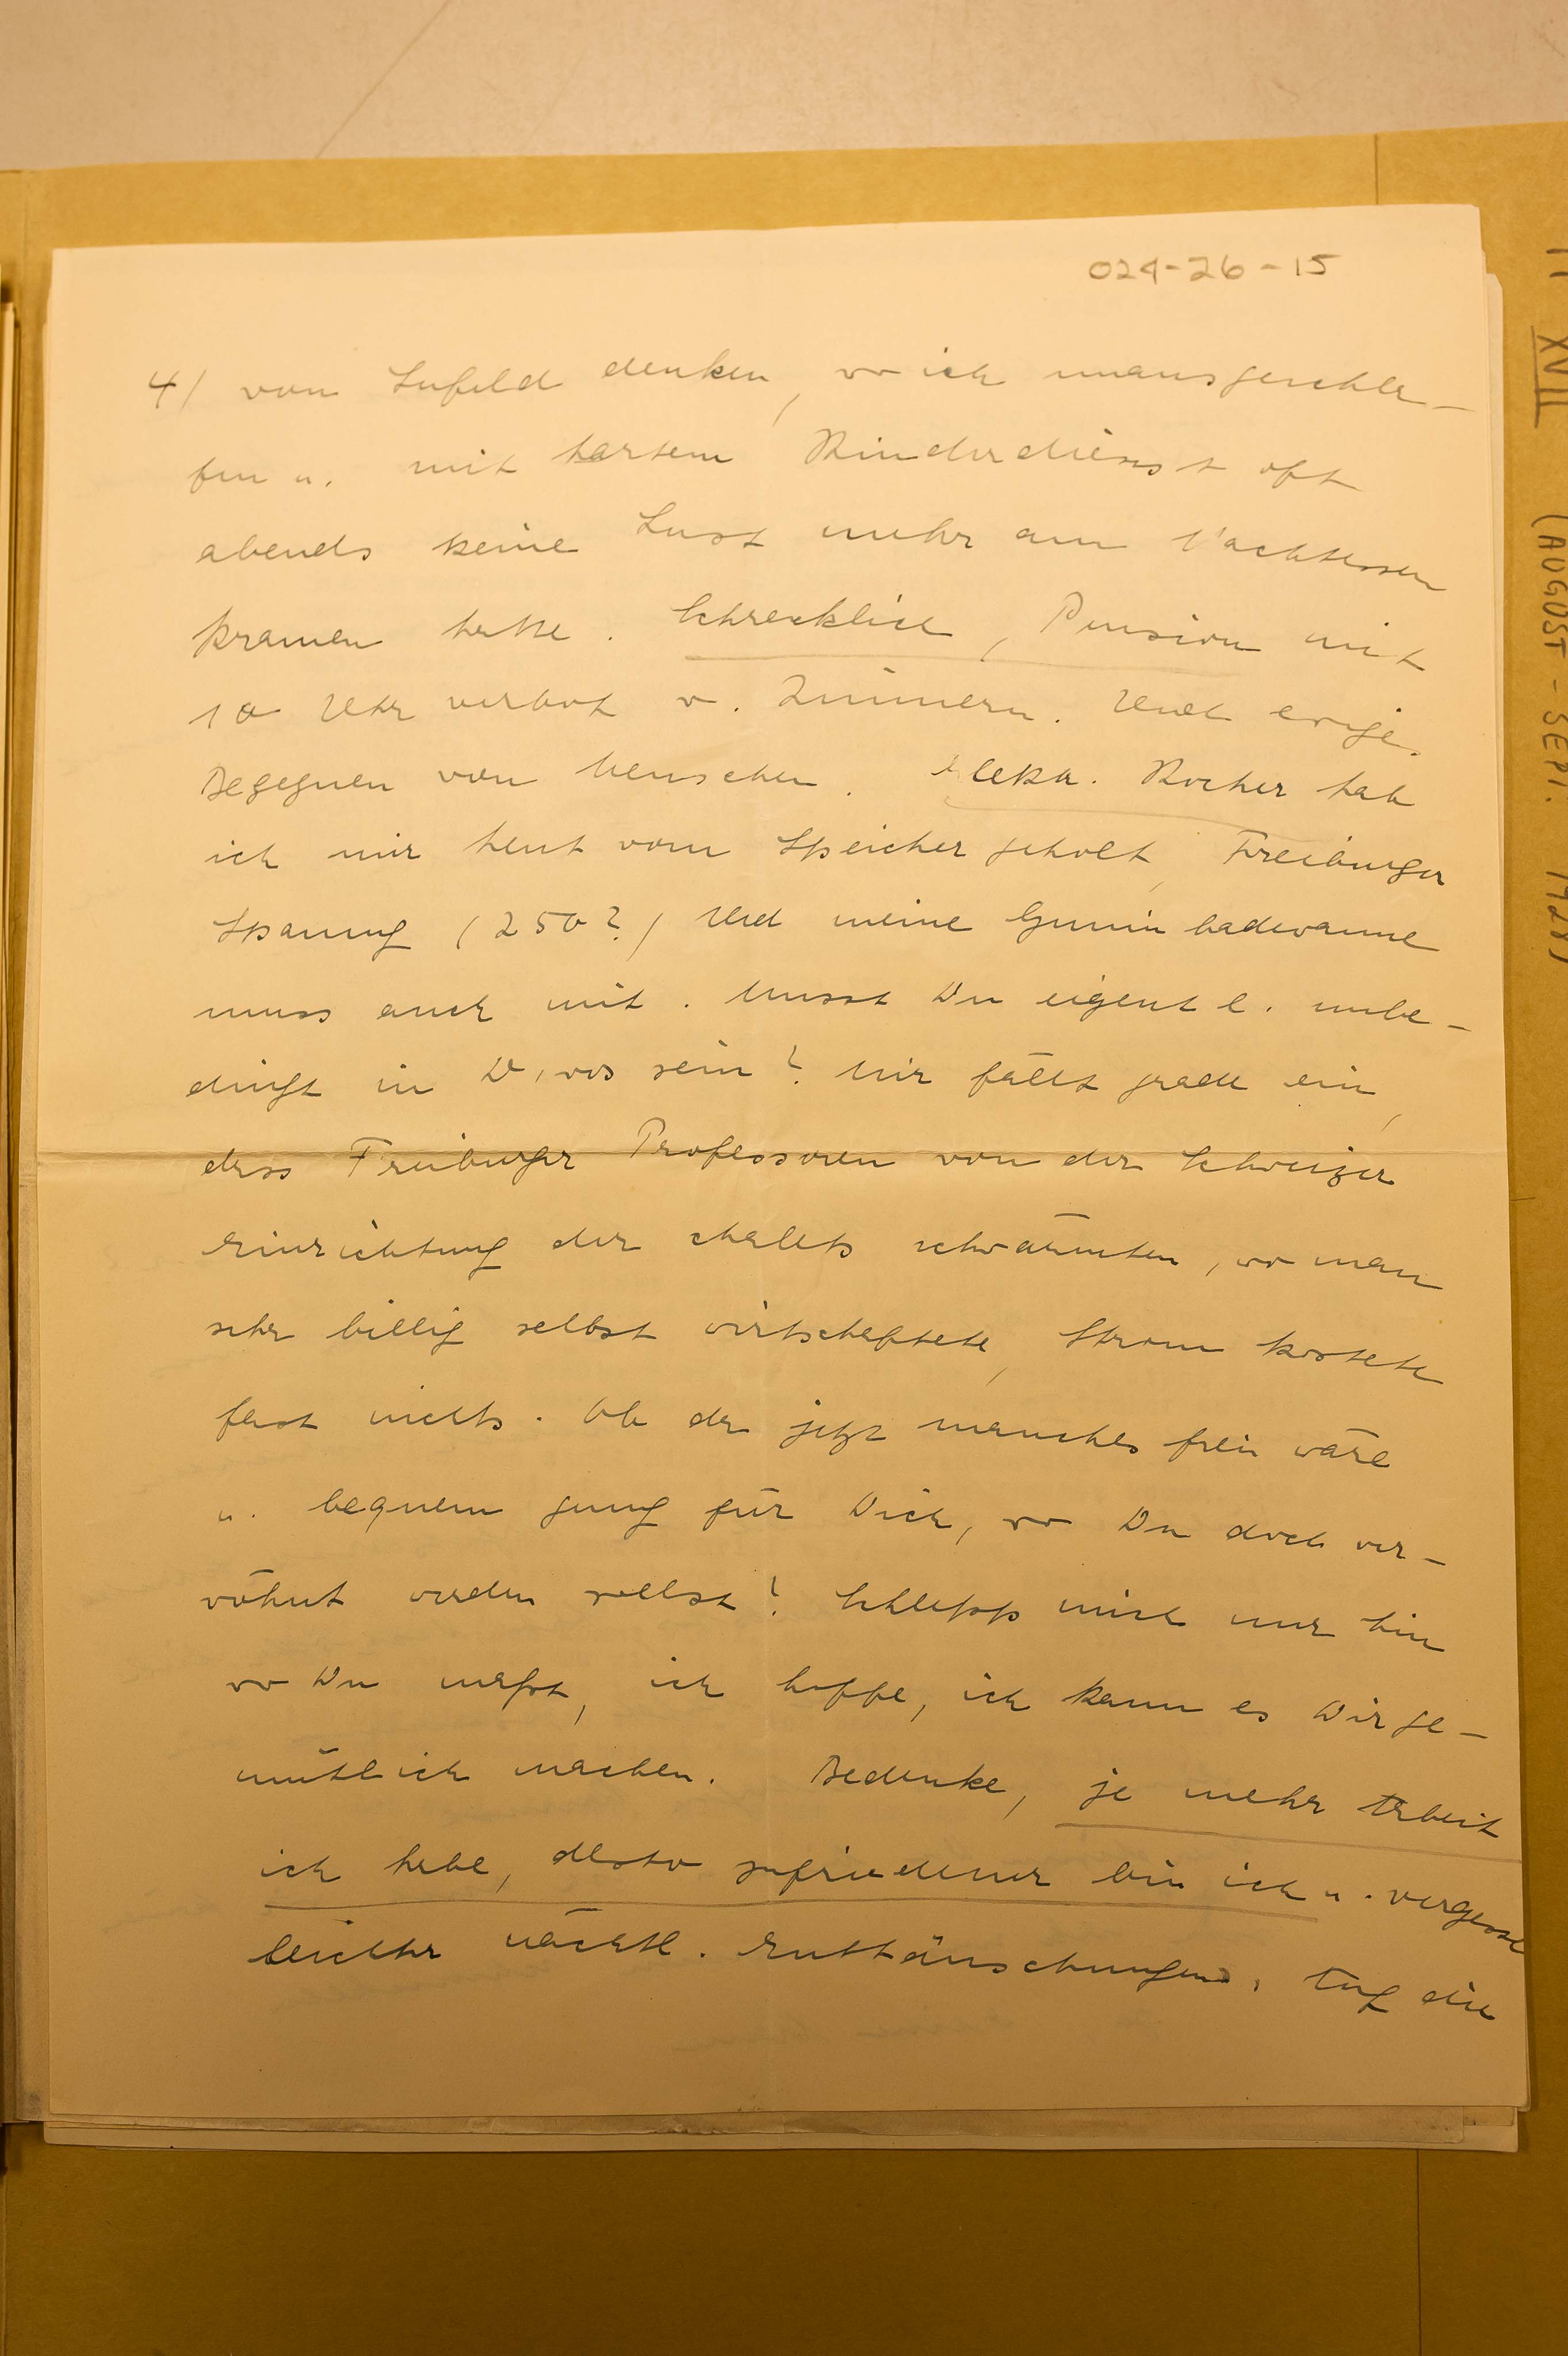 024-26-15
4/ von Seefeld denken, wo ich unausgeschla-
fen u. mit hartem Kinderdienst oft
abends keine Lust mehr am Nachtessen
kramen hatte. Schrecklich, Pension mit
10 Uhr verbot v. Zimmern. Und ewige
Begegnen von Menschen. elektr. Kocher hab
ich mir heut vom Speicher geholt, Freiburger
Spanung (250?) Und meine Gummibadewanne
muss auch mit. Musst Du eigentl. unbe-
dingt in Davos sein? Mir fällt grade ein,
dass Freiburger Professoren von der Schweizer
Einrichtung der chalets schwärmten, wo man
sehr billig selbst wirtschaftete, Strom kostete
fast nichts. Ob da jetzt manches frei wäre
u. bequem genug für Dich, wo Du doch ver-
wöhnt werden sollst? Schlepp mich nur hin
wo Du magst, ich hoffe, ich kann es Dir ge-
mütlich machen. Bedenke, je mehr Arbeit
ich habe, desto zufriedener bin ich u. vergesse
leichter nächtl. Enttäuschungen. die
XVII (AUGUST - SEPT.